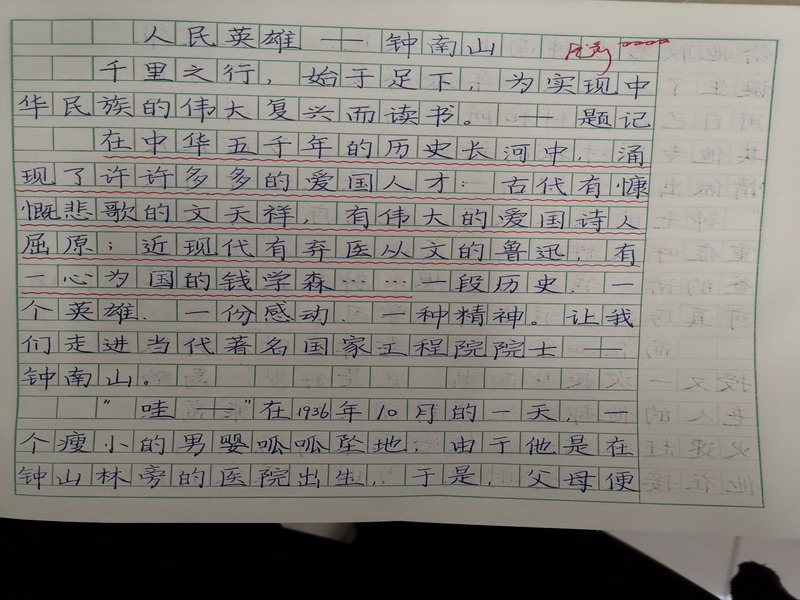 人民英雄——钟南山
千里之行，始于足下，为实现中
华民族的伟大复兴而读书。——题记
在中华五千年的历史长河中，涌
现了许许多多的爱国人才：古代有慷
慨悲歌的文天祥，有伟大的爱国诗人
屈原；近现代有弃医从文的鲁迅，有
一心为国的钱学森……一段历史，一
个英雄，一份感动，一种精神。让我
们走进当代著名国家工程院院士——
钟南山。
“哇——”在1936年10月的一天，一
个瘦小的男婴呱呱坠地，由于他是在
钟山林旁的医院出生，于是，父母便